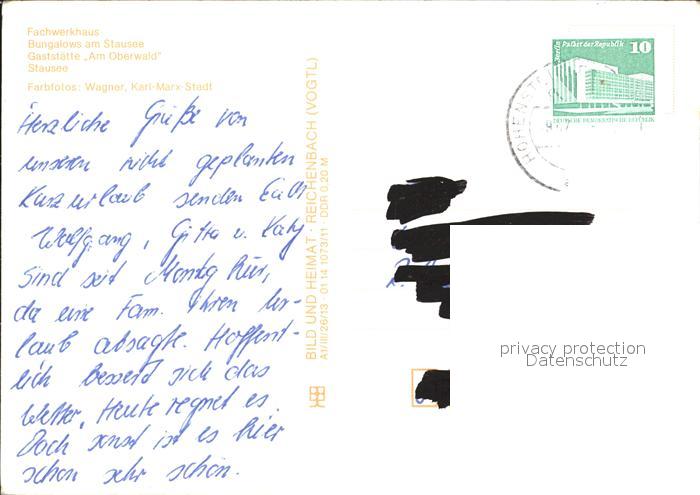 Fachwerkhaus
Bungalows am Stausee
Gaststätte „Am Oberwald"
Stausee
Farbfotos: Wagner, Karl-Marx-Stadt
Herzliche Grüße von
unseren nicht geplanten
Kurzurlaub senden Euch
Wolfgang, Gitta u. Katj
Sind seit Montag hier,
da eine Fam. ihren Ur-
laub absagte. Hoffent-
lich bessert sich das
Wetter. Heute regnet es
Doch sonst ist es hier
schon sehr schön.
BILD UND HEIMAT · REICHENBACH (VOGTL)
A1/III/26/13 · 01 14 1073/11 · DDR 0,20 M
Berlin Palast der Republik 10
DEUTSCHE DEMOKRATISCHE REPUBLIK
HOHENST
privacy protection
Datenschutz